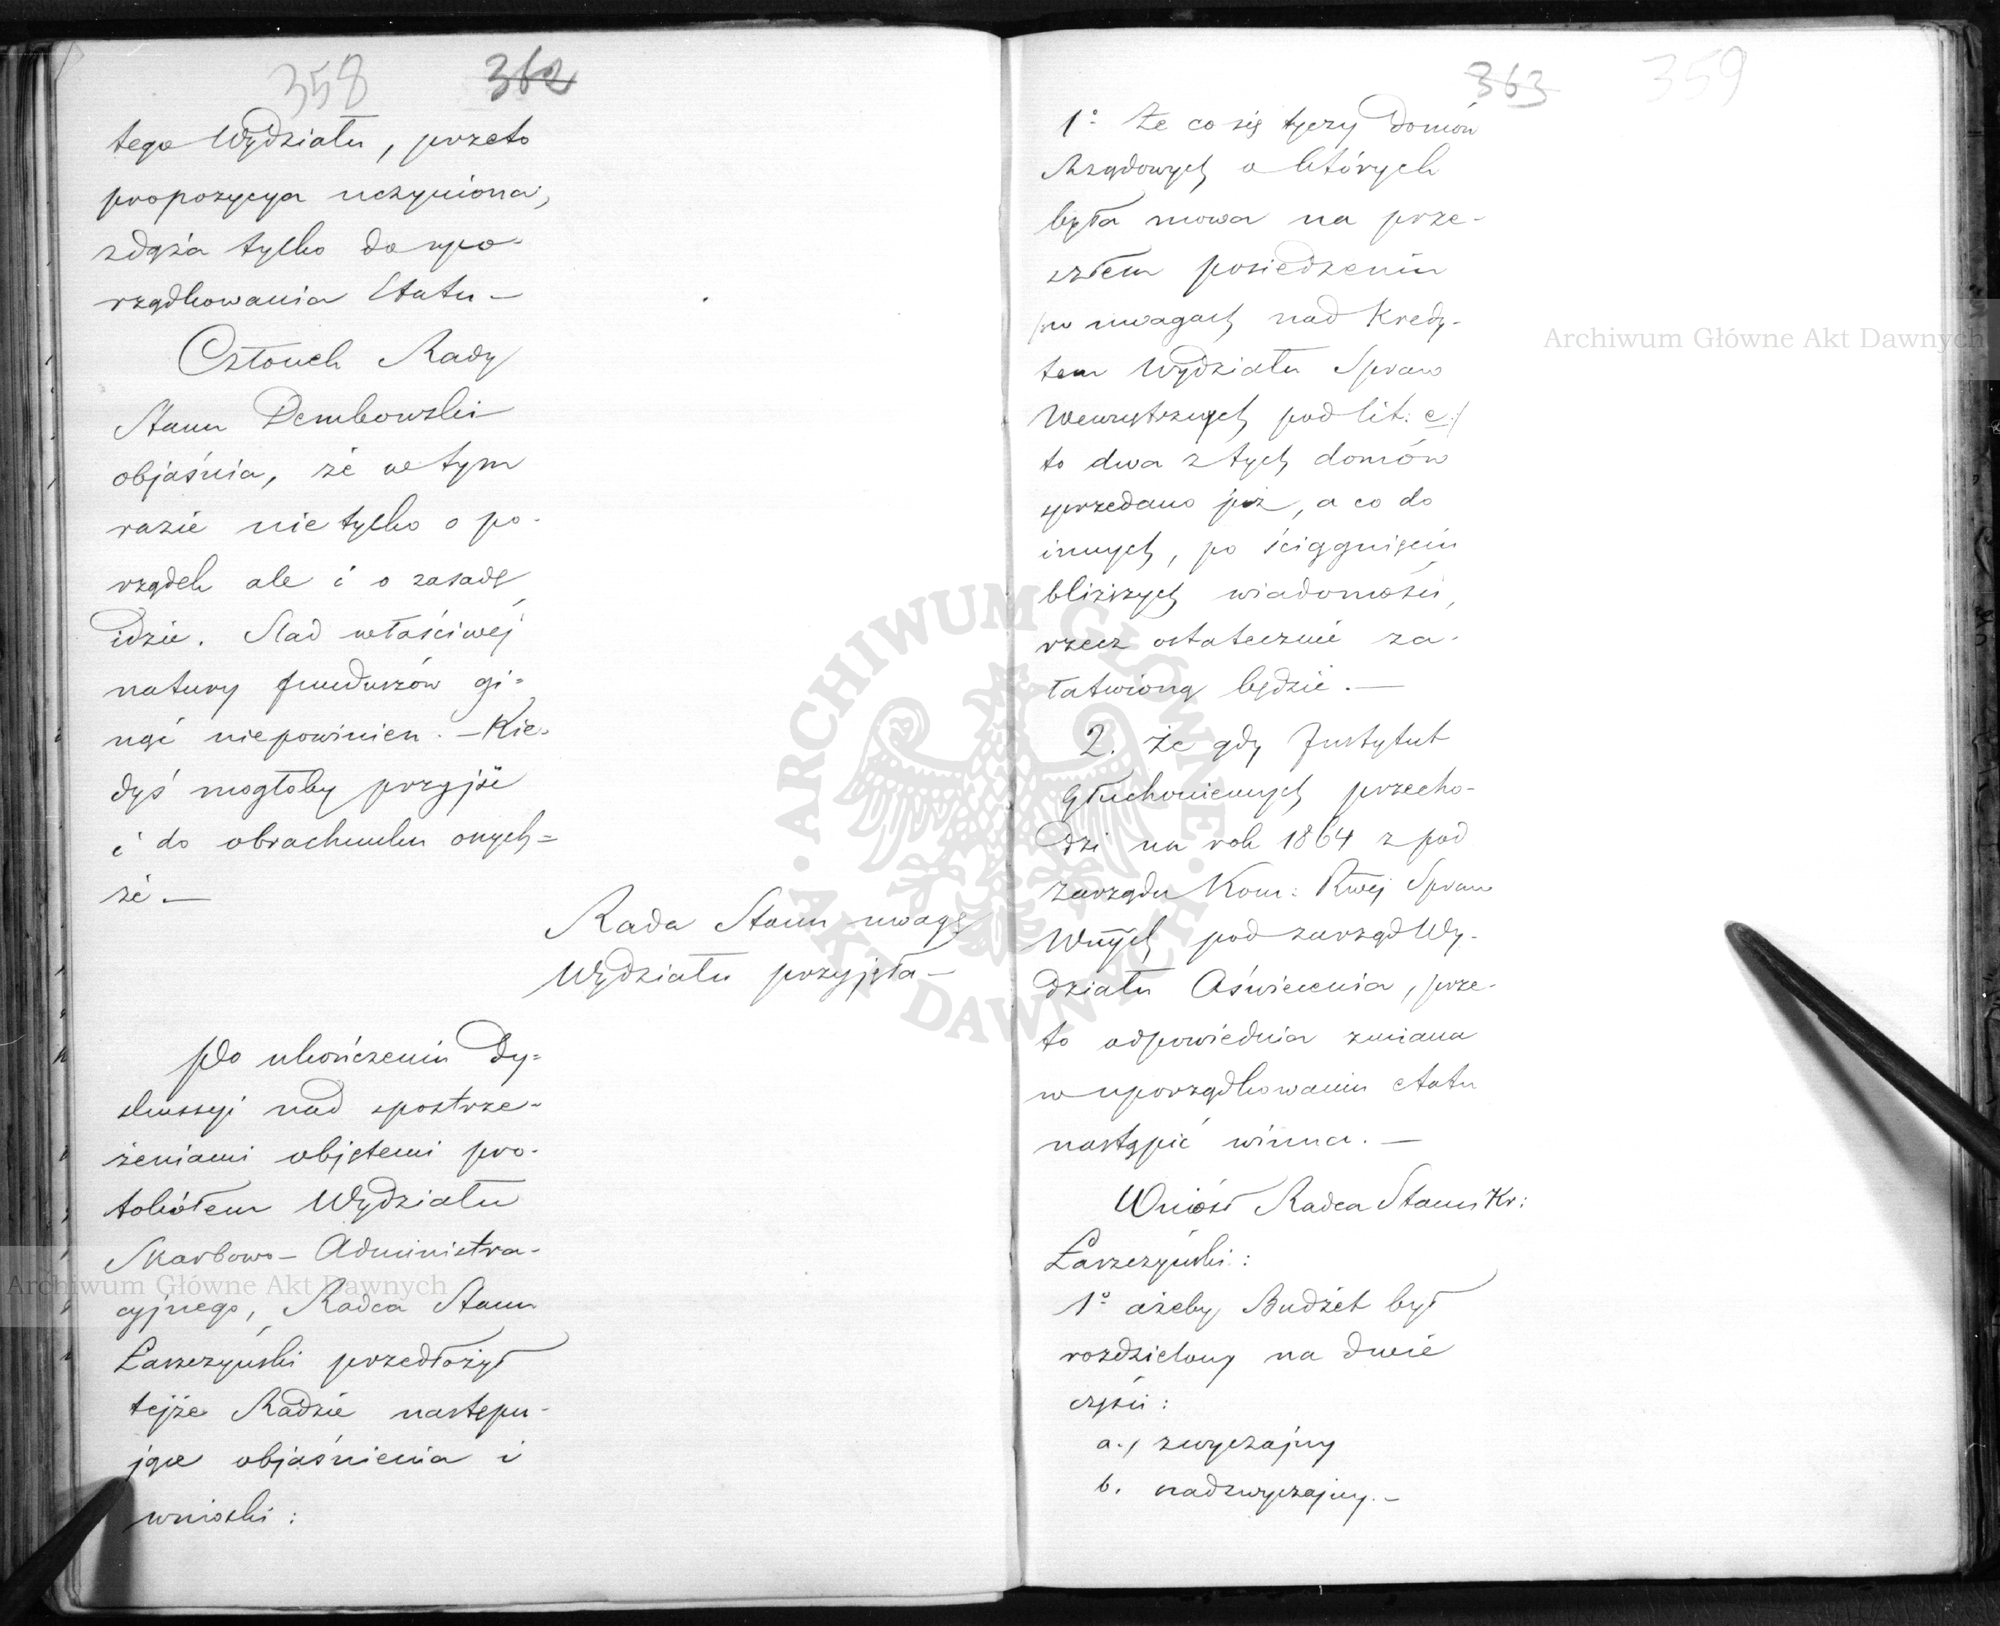 358 362
tego Wydziału, przeto
propozycya uczyniona,
zdąża tylko do upo-
rządkowania Etatu —
Członek Rady
Stanu Dembowski
objaśnia, że w tym
razie nie tylko o po-
rządek ale i o zasadę
idzie. Ślad właściwej
natury funduszów gi-
nąć niepowinien. — Kie-
dyś mogłoby przyjść
i do obrachunku onych=
że —
Rada Stanu uwagę
Wydziału przyjęła —
Po ukończeniu Dy=
skussyi nad spostrze-
żeniami objętemi pro-
tokółem Wydziału
Skarbowo - Administra-
cyjnego, Radca Stanu
Łaszczyński przedłożył
tejże Radzie następu-
jące objaśnienia i
wnioski :
363 359
1º Że co się tyczy Domów
Rządowych o których
była mowa na prze-
szłem posiedzeniu
/w uwagach nad Kredy-
tem Wydziału Spraw
Wewnętrznych pod lit: e:/
to dwa z tych domów
sprzedano już, a co do
innych, po ściągnięciu
bliższych wiadomości,
rzecz ostatecznie za-
łatwioną będzie. —
2. Że gdy Instytut
Głuchoniemych przecho-
dzi na rok 1864 z pod
zarządu Kom: Rwej Spraw
Wnych pod zarząd Wy-
działu Oświecenia, prze-
to odpowiednia zmiana
w uporządkowaniu etatu
nastąpić winna. —
Wniósł Radca Stanu Kr:
Łaszczyński :
1º ażeby Budżet był
rozdzielony na dwie
części :
a./ zwyczajny
b. nadzwyczajny. —
Archiwum Główne Akt Dawnych
Archiwum Główne Akt Dawnych
ARCHIWUM GŁÓWNE AKT DAWNYCH